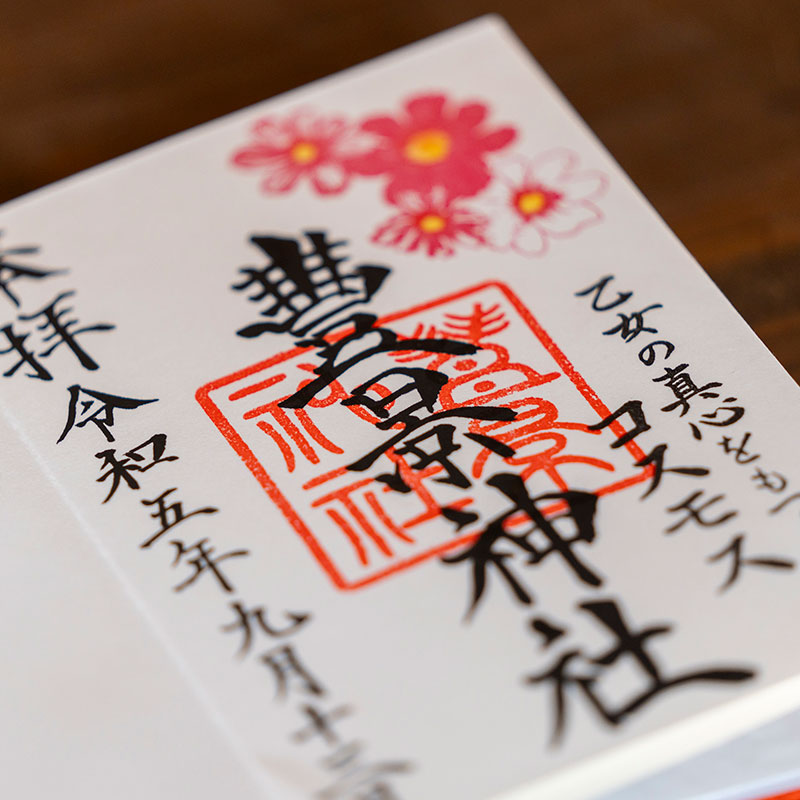 乙女の真心をもつ
コスモス
豊景神社
豊景
神社
奉拝
令和五年九月十二日